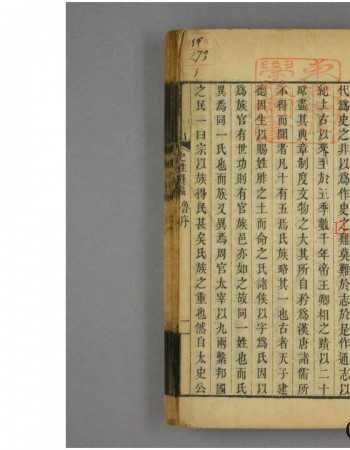 代為史之非以為作史之難莫難於志於是作通志以
紀上古以來至於五季數千年帝王卿相之蹟以二十
略盡其典章制度文物之大其所自矜為漢唐諸儒所
不得而聞者凡十有五焉氏族略其一也古者天子建
德因生以賜姓胙之土而命之氏諸侯以字為氏因以
為族官有世功則有官族邑亦如之故同一姓也而氏
異焉同一氏也而族又異焉周官太宰以九兩繫邦國
之民一曰宗以族得民甚矣氏族之重也然自太史公
魯序
273